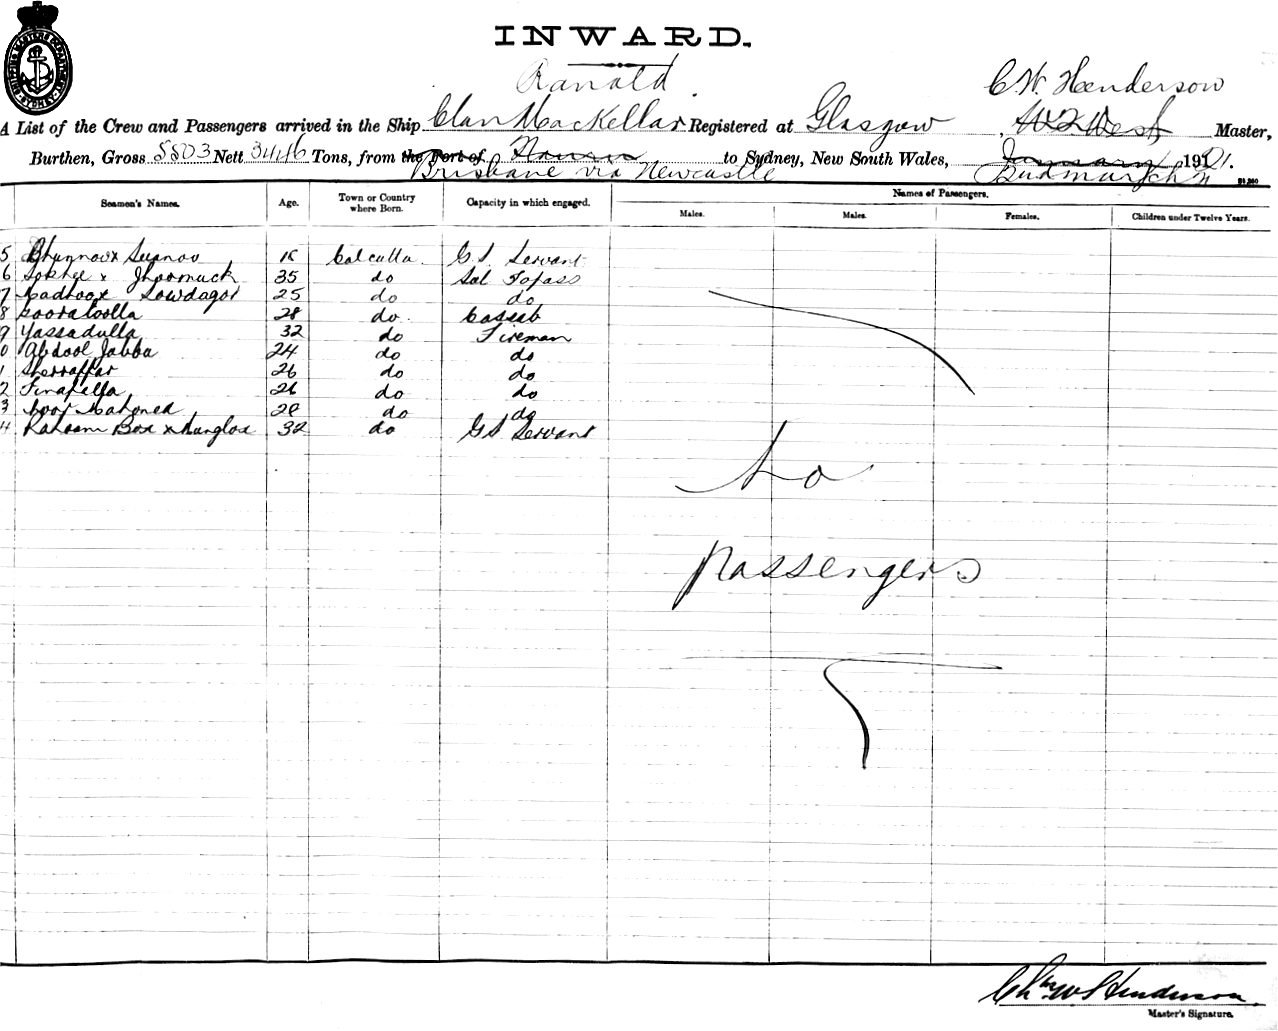 SHIPPING MASTERS DEPARTMENT SYDNEY
INWARD.
Ranald
C W. Henderson
A List of the Crew and Passengers arrived in the Ship Clan MacKellar Registered at Glasgow, W L West Master,
Burthen, Gross 5803 Nett 3446 Tons, from the Port of to Sydney, New South Wales, January 1921.
Brisbane via Newcastle
Seamen's Names. Age. Town or Country where Born. Capacity in which engaged. Names of Passengers.
Males. Males. Females. Children under Twelve Years.
5 Calcutta G.S. Servant
6 Jhoomuck 35 do Sal Topass
7 Sowdagor 25 do do
8 28 do Cassab
9 Yassadulla 32 do Fireman
0 Abdool Jabba 24 do do
1 Sherraffar 26 do do
2 26 do do
3 28 do do
4 Rahoom Box x 32 do GS Servant
No
passengers
Chas W S Henderson
Master's Signature.